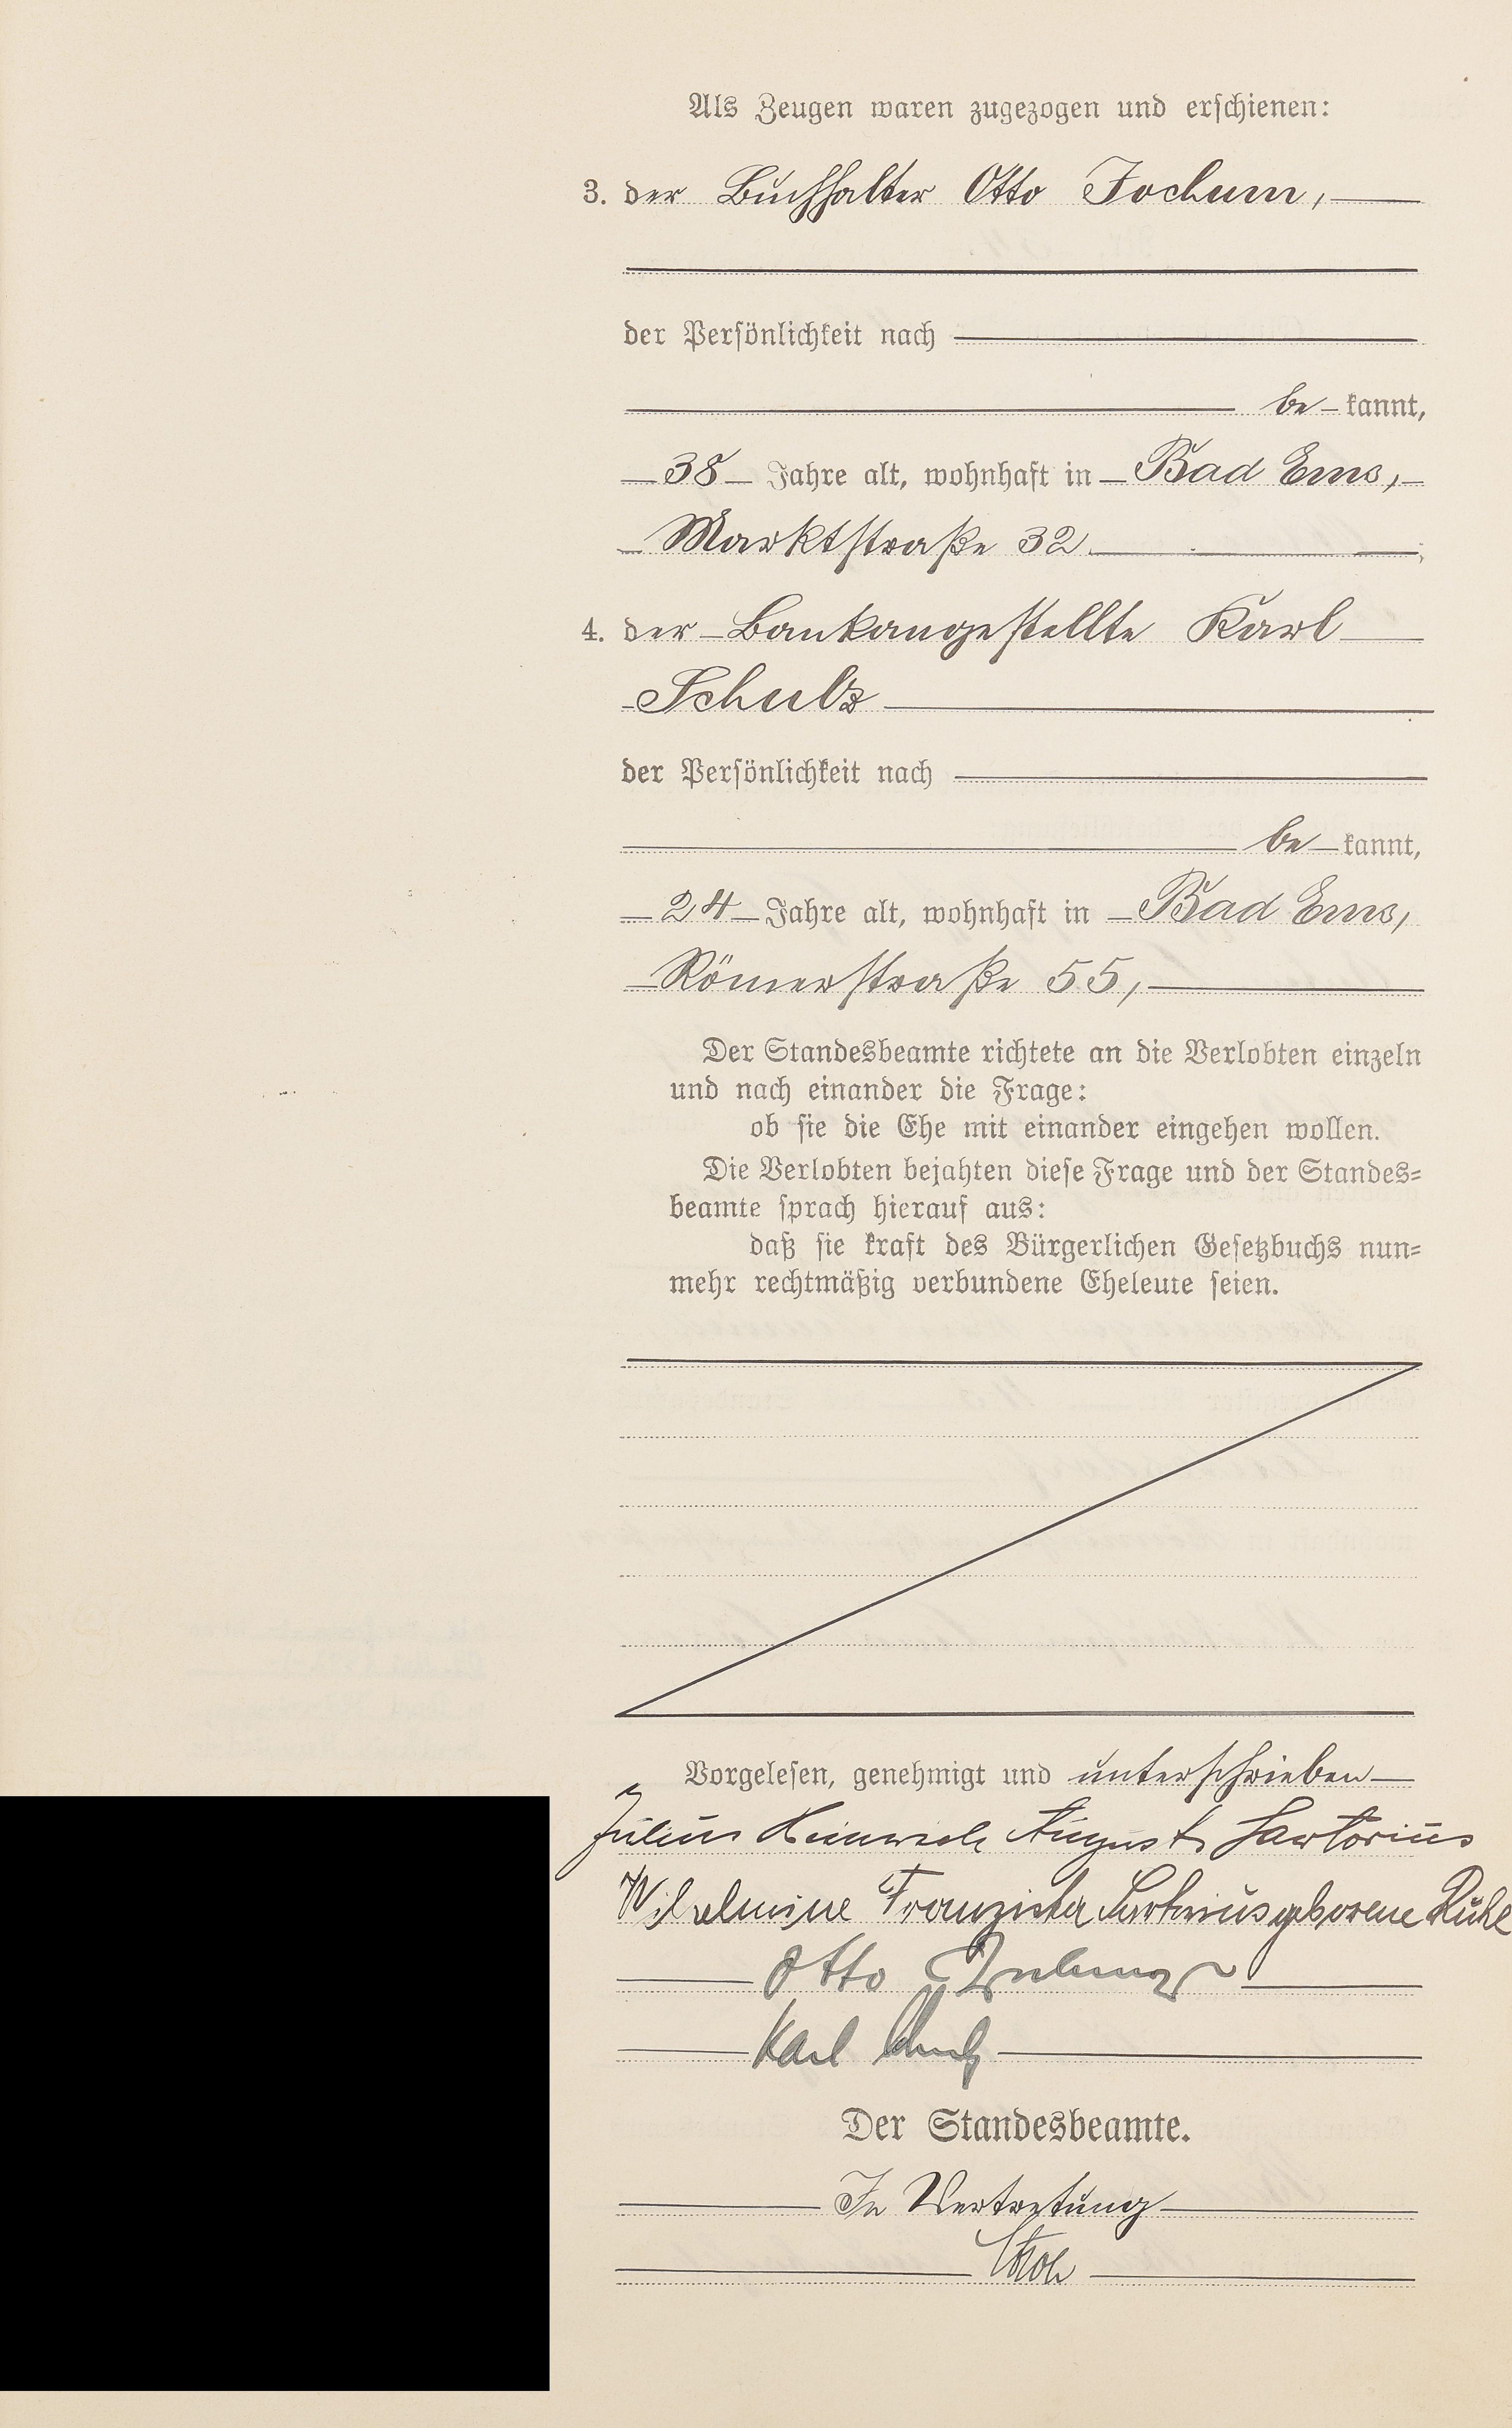 Als Zeugen waren zugezogen und erschienen:
3. der Buchhalter Otto Jochum,
der Persönlichkeit nach
be kannt,
38 Jahre alt, wohnhaft in Bad Ems,
Marktstraße 32
4. der Bankangestellte Karl
Schulz
der Persönlichkeit nach
be kannt,
24 Jahre alt, wohnhaft in Bad Ems,
Römerstraße 55,
Der Standesbeamte richtete an die Verlobten einzeln
und nach einander die Frage:
ob sie die Ehe mit einander eingehen wollen.
Die Verlobten bejahten diese Frage und der Standes=
beamte sprach hierauf aus:
daß sie kraft des Bürgerlichen Gesetzbuchs nun=
mehr rechtmäßig verbundene Eheleute seien.
Vorgelesen, genehmigt und unterschrieben
Julius Heinrich August Sartorius
Wilhelmine Franziska Sartorius geborene Rühl
Otto Jochum
Karl Schulz
Der Standesbeamte.
In Vertretung